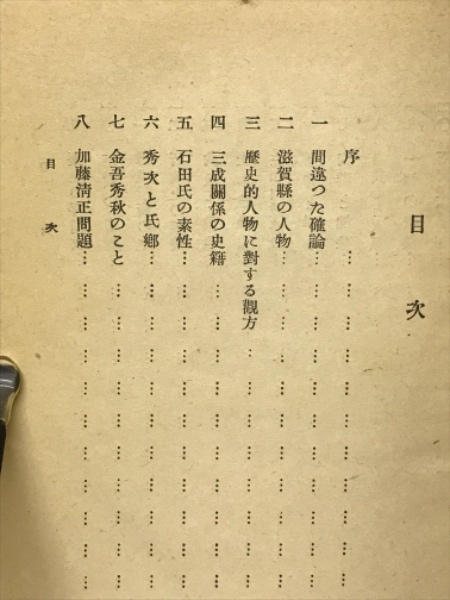 目次
序……………………………
一 間違つた確論……………………………
二 滋賀縣の人物……………………………
三 歷史的人物に對する觀方……………………………
四 三成關係の史籍……………………………
五 石田氏の素性……………………………
六 秀次と氏鄕……………………………
七 金吾秀秋のこと……………………………
八 加藤淸正問題……………………………
目次